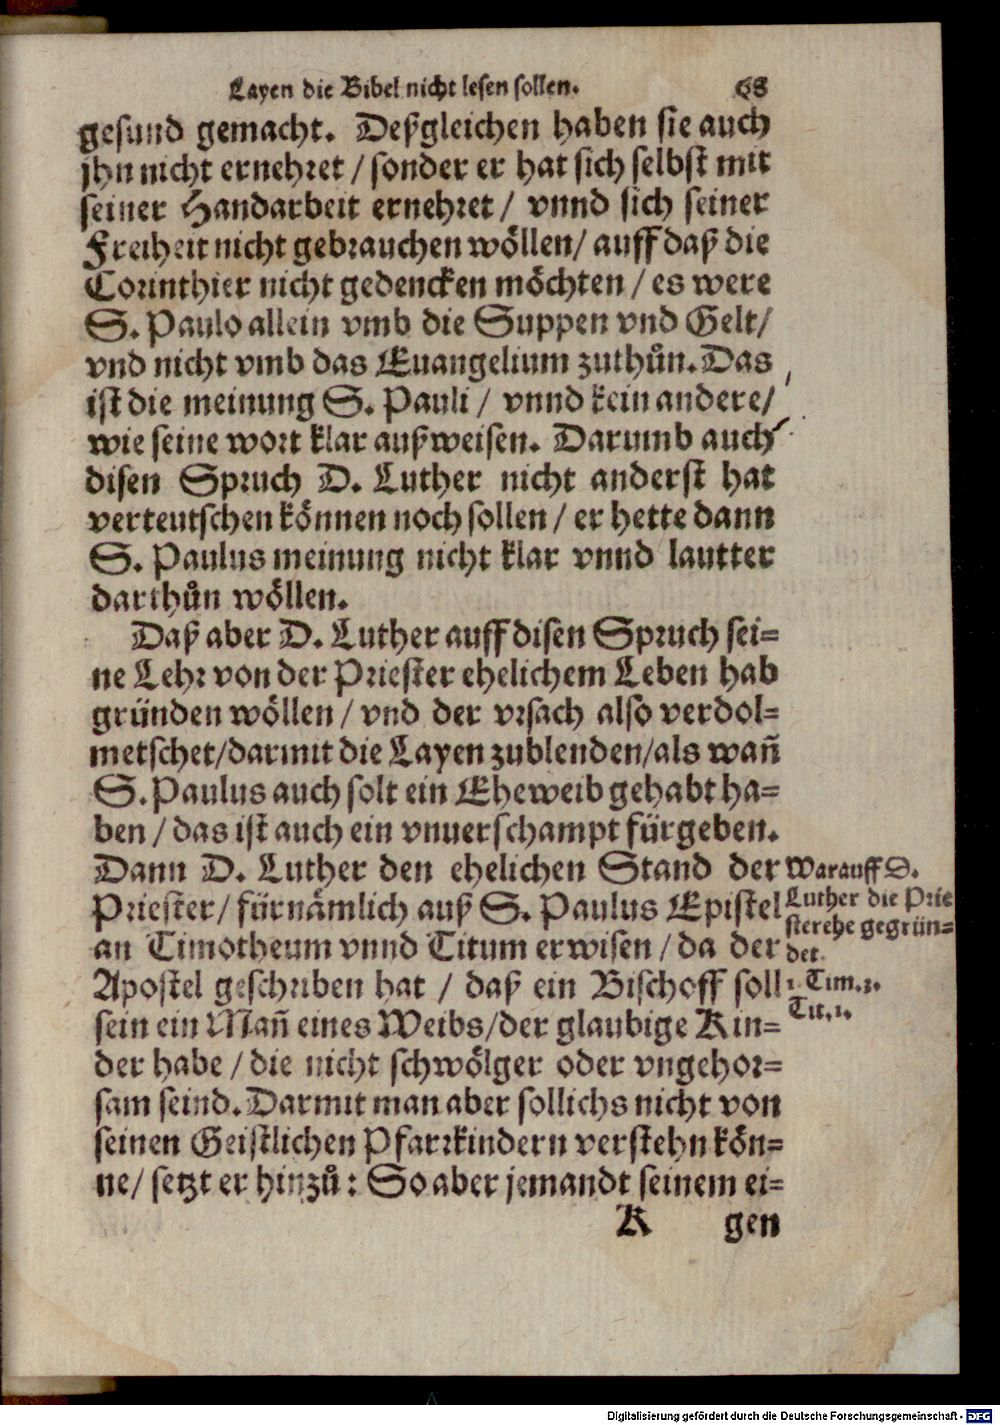 Layen die Bibel nicht lesen sollen. 68
gesund gemacht. Deßgleichen haben sie auch
jhn nicht ernehret / sonder er hat sich selbst mit
seiner Handarbeit ernehret / vnnd sich seiner
Freiheit nicht gebrauchen wöllen / auff daß die
Corinthier nicht gedencken möchten / es were
S. Paulo allein vmb die Suppen vnd Gelt /
vnd nicht vmb das Euangelium zuthůn. Das
ist die meinung S. Pauli / vnnd kein andere /
wie seine wort klar außweisen. Darumb auch
disen Spruch D. Luther nicht anderst hat
verteutschen können noch sollen / er hette dann
S. Paulus meinung nicht klar vnnd lautter
darthůn wöllen.
Daß aber D. Luther auff disen Spruch sei=
ne Lehr von der Priester ehelichem Leben hab
gründen wöllen / vnd der vrsach also verdol=
metschet / darmit die Layen zublenden / als wañ
S. Paulus auch solt ein Eheweib gehabt ha=
ben / das ist auch ein vnuerschampt fürgeben.
Dann D. Luther den ehelichen Stand der
Priester / fürnämlich auß S. Paulus Epistel
an Timotheum vnnd Titum erwisen / da der
Apostel geschriben hat / daß ein Bischoff soll
sein ein Mañ eines Weibs / der glaubige Kin=
der habe / die nicht schwölger oder vngehor=
sam seind. Darmit man aber sollichs nicht von
seinen Geistlichen Pfarrkindern verstehn kön=
ne / setzt er hinzů : So aber jemandt seinem ei=
K gen
Warauff D.
Luther die Prie
sterehe gegrün=
det.
1. Tim. 3.
Tit. 1.
Digitalisierung gefördert durch die Deutsche Forschungsgemeinschaft - DFG